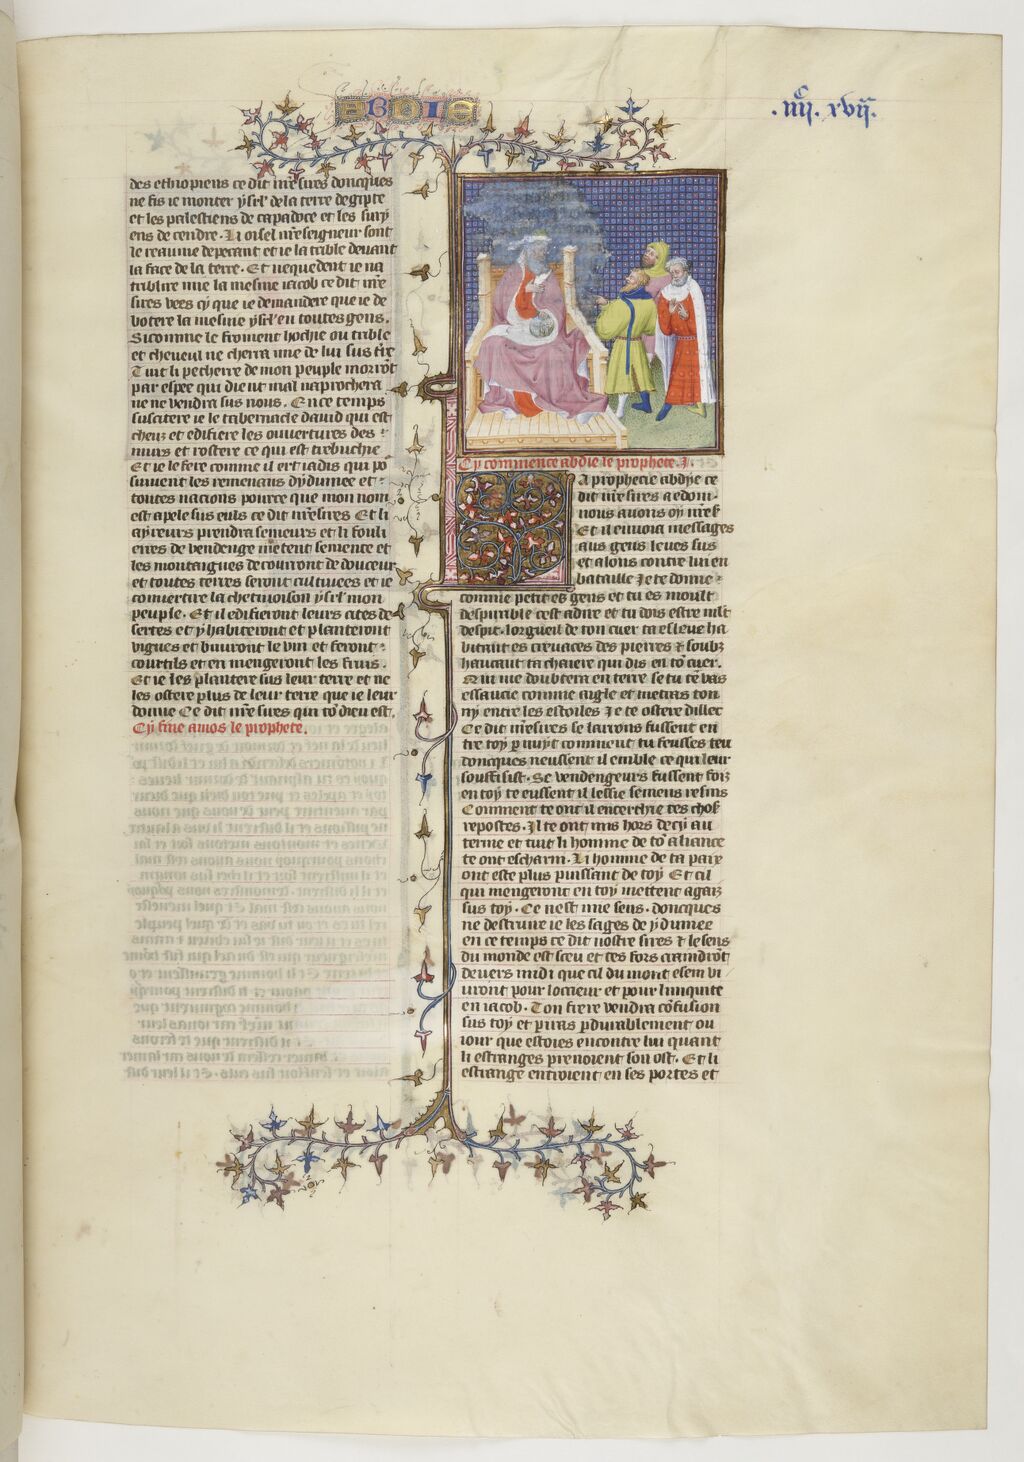 ABDIE
.iiiiC. xvii.
des ethiopiens ce dit nr̄e sires doncques
ne fis ie monter ysrl' de la terre degipte
et les palestiens de capadoce et les surij
ens de cendre. Li oisel nr̄e seigneur sont
le reaume depecant et ie la trible deuant
la face de la terre. Et nequedent ie na
triblire mie la mesme iacob ce dit nr̄e
sires vees cy que ie demandere que ie de
botere la mesme ysrl' en toutes gens.
Sicomme le froment hochie ou trible
et cheueul ne cherra mie de lui sus t̄re
Tuit li pecherre de mon peuple morrōt
par espee qui dient mal naprochera
ne ne vendra sus nous. En ce temps
suscitere ie le tabernacle dauid qui est
cheuz et edifiere les ouuertures des
murs et rostere ce qui est trebuchie
Et ie le fere comme il ert iadis qui po
suivent les remenans dydumee et
toutes nacions pource que mon nom
est apele sus euls ce dit nr̄e sires Et li
ayreurs prendra semeurs et li fouli
erres de vendenge metent semence et
les montaignes decouront de douceur
et toutes terres seront cultiuees et ie
conuertire la chetiuoison ysrl' mon
peuple. Et il edifieront leurs cites de
sertes et y habiteront et planteront
vignes et buuront le vin et feront
courtils et en mengeront les fruis.
Et ie les plantere sus leur terre et ne
les ostere plus de leur terre que ie leur
donne Ce dit nr̄e sires qui tō dieu est.
Cy fine amos le prophete.
Cy commence abdie le prophete. j.
La prophecie abdye ce
dit nr̄e sires a edom
nous auons oy nr̄e s'
Et il enuoia messages
aus gens leues sus
et alons contre lui en
bataille Je te donne
comme petit es gens et tu es moult
despitable cest adire et tu dois estre mlt'
despit. lorgueil de ton cuer ta esleue ha
bitant es creuaces des pierres et soubz
haucant ta chaiere qui dis en tō cuer.
Qui me doubtera en terre se tu te vas
essaucie comme aigle et metras ton
ny entre les estoiles Je te ostere dillec
Ce dit nr̄e sires se larrons fussent en
tre toy p nuyt comment tu feusses teu
doncques neussent il emble ce qui leur
souffisist. Se vendengeurs fussent fors
en toy te eussent il lessie semeus resins
Comment te ont il encerchie tes chos'
repostes. Il te ont mis hors decy au
terme et tuit li homme de tō aliance
te ont escharni. Li homme de ta paix
ont este plus puissant de toy Et cil
qui mengeront en toy mettent agaiz
sus toy. Ce nest mie sens. doncques
ne destruire ie les sages de ydumee
en ce temps ce dit nostre sires et le sens
du monde est sceu et tes fors craindrōt
deuers midi que cil du mont esem vi
uront pour locieur et pour liniquite
en iacob. Ton frere vendra cōfusion
sus toy et piras pdurablement ou
iour que estoies encontre lui quant
li estranges prenoient son ost. Et li
estrange entroient en ses portes et